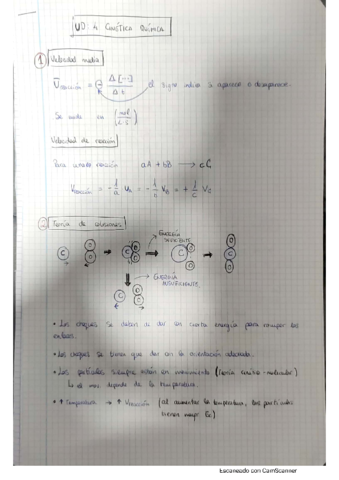 UD. 4 CINÉTICA QUÍMICA
1 Velocidad media
V̄reacción = ± Δ[...] / Δt el signo indica si aparece o desaparece
Se mide en (mol / L·s)
Velocidad de reacción
Para una reacción aA + bB → cC
Vreacción = - 1/a VA = - 1/b VB = + 1/c VC
2 Teoría de colisiones
ENERGÍA SUFICIENTE
C O O C O O C O O C O
ENERGÍA INSUFICIENTE
C O O
• Los choques se deben de dar con cierta energía para romper los
enlaces.
• Los choques se tienen que dar en la orientación adecuada.
• Las partículas siempre están en movimiento (teoría cinético-molecular)
depende de la temperatura.
• ↑ Temperatura → ↑ Vreacción (al aumentar la temperatura, las partículas
tienen mayor Ec)
Escaneado con CamScanner